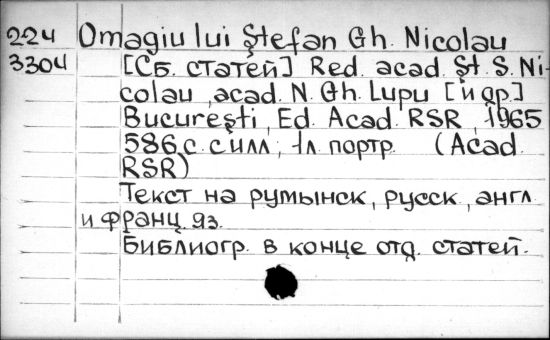 224 Omagiu lui Ştefan Gh. Nicolau
3304 [Сб. статей] Red. acad. Şt. S. Ni-
colau, acad. N. Gh. Lupu [и др.]
Bucureşti, Ed. Acad. RSR, 1965
586 с. с илл; 1 л. портр. (Acad.
RSR)
Текст на румынск., русск., англ
и франц. яз.
Библиогр. в конце отд. статей.